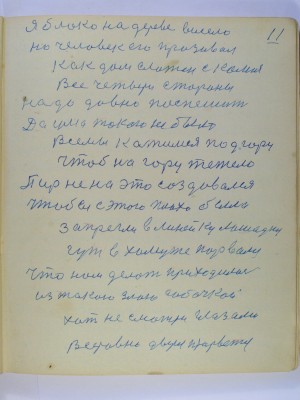 11
Яблоко на дереве висело
но человек его призывал
Как дом сложен с камня
Все четыри стороны
надо довно поспешит
Да ума такого не было
Все мы катимся под гору
Чтоб на гору тежело
Пир не на это создовался
Чтоб с этого плохо было
Запрегли в линейку лошадку
гуж в хомуте порвали
Что нам делат приходилос
из такого злого собачкой
хот не смотри глазами
Всё ровно двери